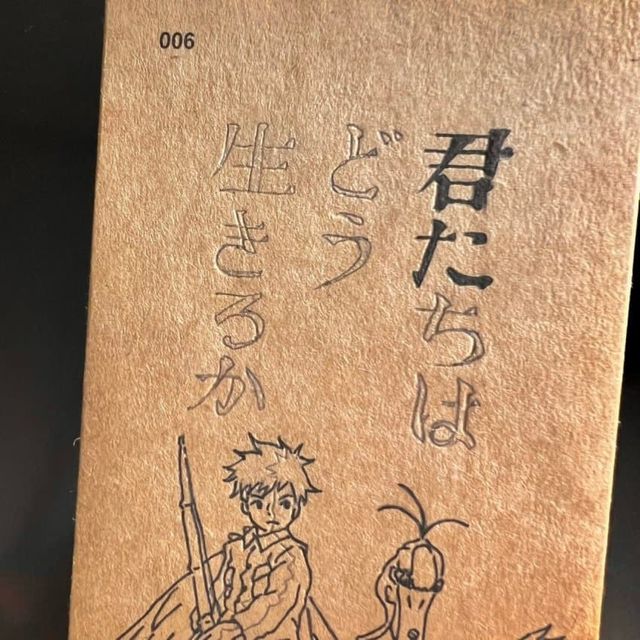 006
君たちは
どう
生きるか